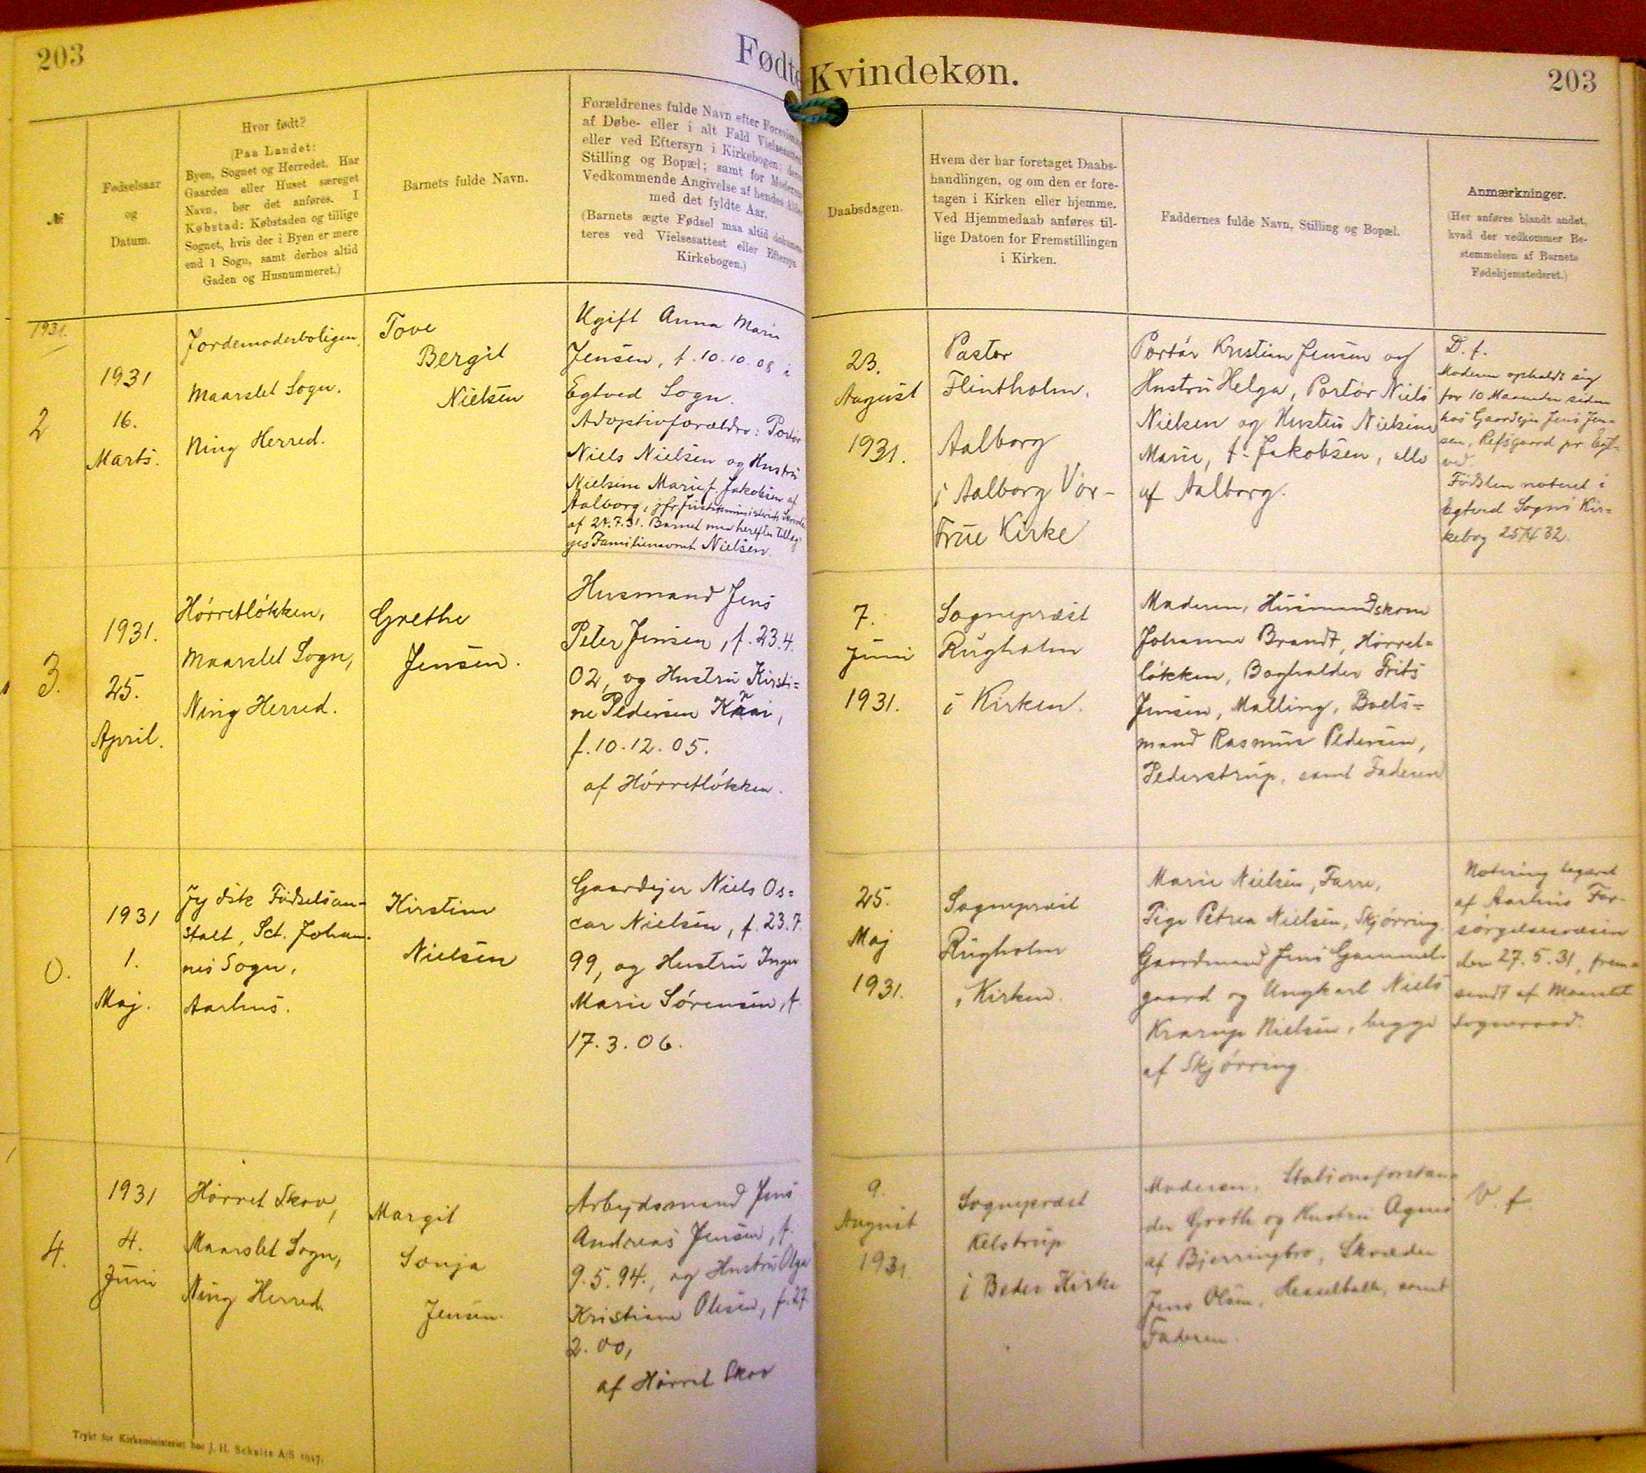 203
Fødte Kvindekøn.
203
№
Fødselsaar
og
Datum.
Hvor født?
(Paa Landet:
Byen, Sognet og Herredet. Har
Gaarden eller Huset særeget
Navn, bør det anføres. I
Købstad: Købstaden og tillige
Sognet, hvis der i Byen er mere
end 1 Sogn, samt derhos altid
Gaden og Husnummeret.)
Barnets fulde Navn.
Forældrenes fulde Navn efter
af Døbe- eller i alt Fald
eller ved Eftersyn i Kirkebogen;
Stilling og Bopæl; samt for
Vedkommende Angivelse af hendes
med det fyldte Aar.
(Barnets ægte Fødsel maa altid
teres ved Vielsesattest eller Eftersyn
Kirkebogen.)
Daabsdagen.
Hvem der har foretaget Daabs-
handlingen, og om den er fore-
tagen i Kirken eller hjemme.
Ved Hjemmedaab anføres til-
lige Datoen for Fremstillingen
i Kirken.
Faddernes fulde Navn, Stilling og Bopæl.
Anmærkninger.
(Her anføres blandt andet,
hvad der vedkommer Be-
stemmelsen af Barnets
Fødehjemstedsret.)
1931.
2
1931
16.
Marts.
Jordemoderboligen,
Maarslet Sogn.
Ning Herred.
Tove
Bergit
Nielsen
Ugift Anna Marie
Jensen, f. 10.10.08 i
Egtved Sogn.
Adoptivforældre: Portør
Niels Nielsen og Hustru
Nielsine Marie f. Jakobsen af
Aalborg, jfr Justitsministeriets
af 24.7.31. Barnet maa herefter tillæg-
ges Familienavnet Nielsen.
23.
August
1931.
Pastor
Flintholm,
Aalborg
i Aalborg Vor-
Frue Kirke
Portør Kristian Jensen og
Hustru Helga, Portør Niels
Nielsen og Hustru Nielsine
Marie, f. Jakobsen, alle
af Aalborg.
D. f.
Moderen opholdt sig
for 10 Maaneder siden
hos Gaardejer Jens Jen-
sen, Refsgaard pr. Egt-
ved.
Fødslen noteret i
Egtved Sogns Kir-
kebog 25/4 32.
3.
1931.
25.
April.
Hørretløkken,
Maarslet Sogn,
Ning Herred.
Grethe
Jensen.
Husmand Jens
Peter Jensen, f. 23.4.
02, og Hustru Kirsti-
ne Pedersen
f. 10.12.05.
af Hørretløkken.
7.
Juni
1931.
Sognepræst
Rugholm
i Kirken.
Moderen, Husmandskone
Johanne Brandt, Hørret-
løkken, Bogholder Frits
Jensen, Malling, Boels-
mand Rasmus Pedersen,
Pederstrup, samt Faderen
0.
1931
1.
Maj.
Jydsk Fødselsan-
stalt, Sct. Johan-
nes Sogn,
Aarhus.
Kirstine
Nielsen
Gaardejer Niels Os-
car Nielsen, f. 23.7.
99, og Hustru Inger
Marie Sørensen, f.
17.3.06.
25.
Maj
1931.
Sognepræst
Rugholm
i Kirken.
Marie Nielsen, Farre,
Pige Petrea Nielsen, Skjørring
Gaardmand Jens Gammel-
gaard og Ungkarl Niels
Krarup Nielsen, begge
af Skjørring.
Notering begæret
af Aarhus For-
sørgelsesvæsen
den 27.5.31, frem-
sendt af Maarslet
Sogneraad.
4.
1931
4.
Juni
Hørret Skov,
Maarslet Sogn,
Ning Herred
Margit
Sonja
Jensen.
Arbejdsmand Jens
Andreas Jensen, f.
9.5.94., og Hustru Olga
Kristiane Olesen, f. 27.
2.00,
af Hørret Skov
9.
August
1931
Sognepræst
Kelstrup
i Beder Kirke
Moderen, Stationsforstan-
der Groth og Hustru Agnes
af Bjerringbro, Skræder
Jens Olsen, Hesselballe, samt
Faderen.
V. f.
Trykt for Kirkeministeriet hos J. H. Schultz A/S 1917.